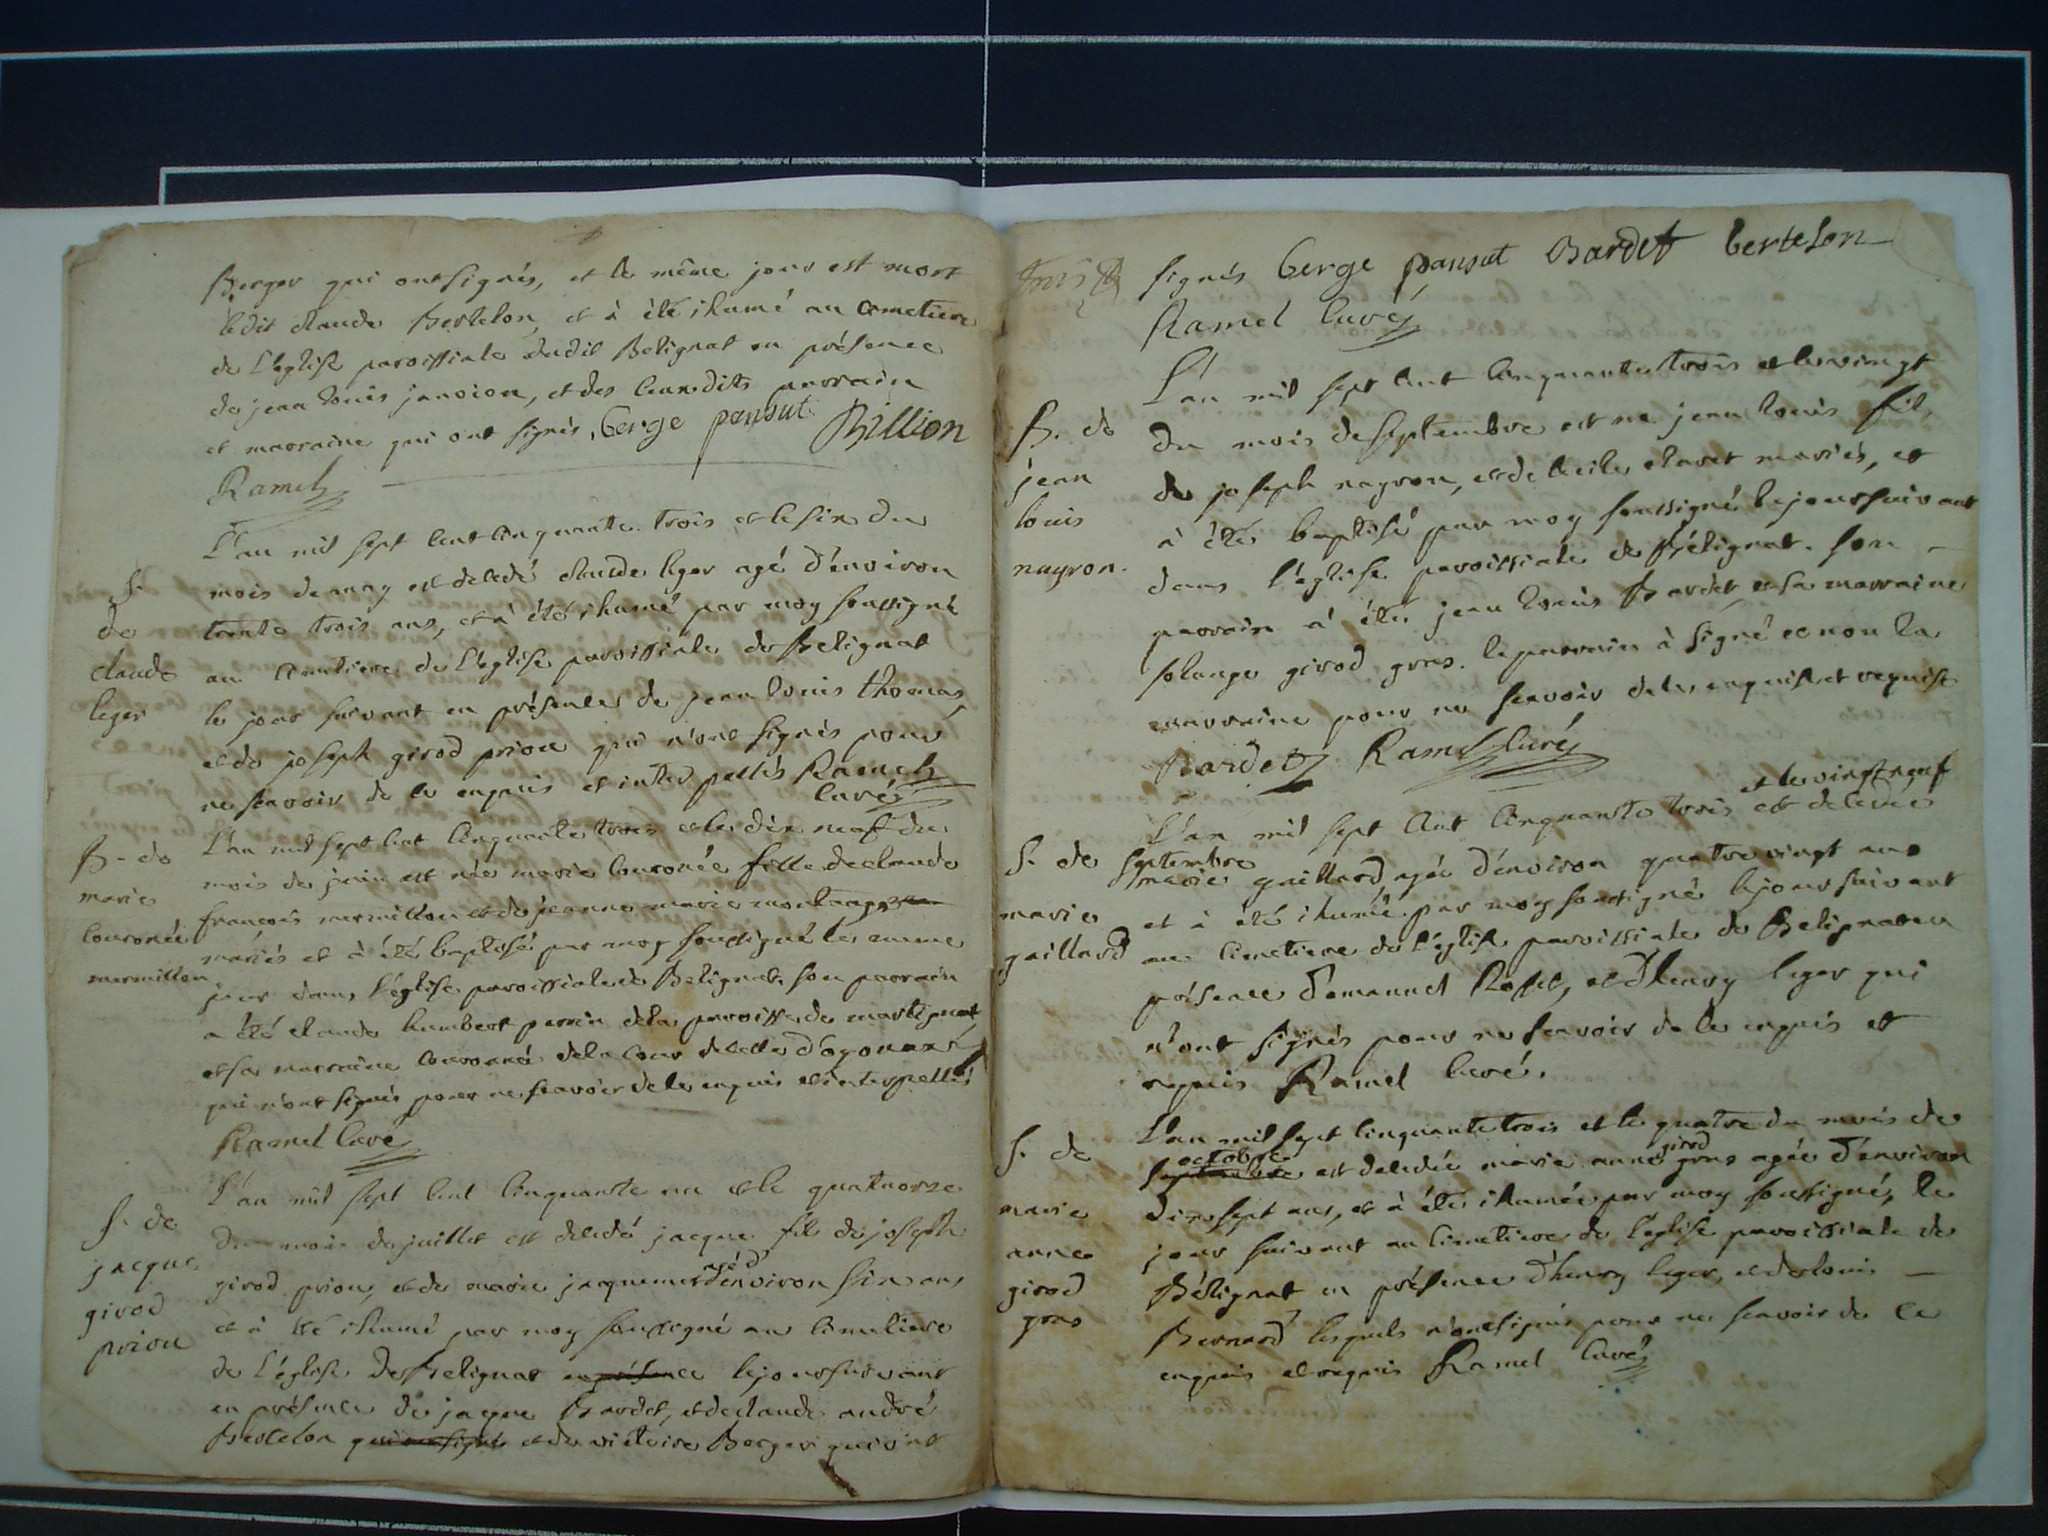 Berger qui ont signés, et le même jour est mort
ledit claude Bertelon, et à été ihumé au cemetiere
de L'eglise paroissiale dudit Belignat en présence
de jean Louis janvion, et des susdits parrain
et marraine qui ont signés, berge pansut Billion
Ramel
L'an mil sept cent cinquante trois et le six du
mois de may est decedé claude leger agé d'environ
trente trois ans, et à été ihumé par moy soussigné
au cemetiere de L'eglise paroissiale de Belignat
le jour suivant en présence de jean Louis thomas,
et de joseph girod priou qui n'ont signés pour
ne scavoir de ce enquis et interpellés Ramel
curé
S.
de
claude
leger
L'an mil sept cent cinquante trois et le dix neuf du
mois de juin est née marie couronée fille de claude
francois mermillon et de jeanne marie montange
mariés et à été baptisé par moy soussigné le même
jour dans l'église paroissiale de Belignat. son parrain
a été claude humbert perrin de la paroisse de martignat,
et sa marraine couronnée de la cour de celle d'oyonnax
qui n'ont signés pour ne scavoir de ce enquis et interpellés
Ramel curé
B. de
marie
couronée
mermillon
L'an mil sept cent cinquante un et le quatuorze
du mois de juillet est decedé jacque fils de joseph
girod priou, et de marie jacquemet agé d'environ six ans
et à été ihumé par moy soussigné au cimetiere
de L'église de Belignat en présence le jour suivant
en présence de jacque Bardet, et de claude andré
Bertelon qui ont signés et de victoire Berger qui ont
S. de
jacque
girod
priou
signés berge pansut Bardet bertelon
Ramel curé
L'an mil sept cent cinquante trois et le vingt
du mois de septembre est né jean Louis fils
de joseph nayron, et de cecile clavet mariés, et
à été baptisé par moy soussigné le jour suivant
dans l'église paroissiale de Bélignat. son
parrain à été jean Louis Bardet, et sa marraine
solange girod gros. le parrain à signé et non la
marraine pour ne scavoir de ce enquise et requise
Bardet Ramel curé
B. de
jean
louis
nayron.
L'an mil sept cent cinquante trois et le vingt neuf est decedée
septembre marie gaillard, agée d'environ quatre vingt ans
et à été ihumé par moy soussigné le jour suivant
au cimetiere de L'église paroissiale de Belignat en
présence d'emanuel Rosset, et d'henry leger qui
n'ont signés pour ne scavoir de ce enquis et
requis Ramel curé.
S. de
marie
gaillard
L'an mil sept cinquante trois et le quatre du mois de
septembre octobre est decedée marie anne girod gros agée d'environ
dix sept ans, et à été ihumée par moy soussigné, le
jour suivant au cimetiere de l'église paroissiale de
Bélignat en présence d'henry leger, et de louis
Bernard lesquels n'ont signés pour ne scavoir de ce
enquis et requis Ramel curé
S. de
marie
anne
girod
gros